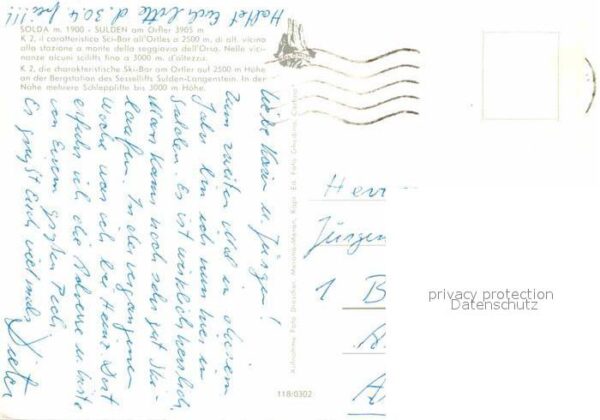 Haltet Euch bitte d. 30.4 frei!!!
SOLDA m. 1900 - SULDEN am Ortler 3905 m
K 2, il caratteristico Sci-Bar all'Ortles a 2500 m, di alt. vicino
alla stazione a monte della seggiovia dell'Orso. Nelle vici-
nanze alcuni scilifts fino a 3000 m. d'altezza.
K 2, die charakteristische Ski-Bar am Ortler auf 2500 m Höhe
an der Bergstation des Sessellifts Sulden-Langenstein. In der
Nähe mehrere Schlepplifte bis 3000 m Höhe.
Liebe Karin u. Jürgen!
Zum zweiten Mal in diesem
Jahr bin ich nun hier in
Sulden. Es ist wirklich herrlich,
Man kann noch sehr gut Ski
laufen. In der vergangenen
Woche war ich bei Heinz. Dort
erfuhr ich die Adresse u.
von Eurem großen Pech.
Es grüßt Euch vielmals
Dieter
118:0302
Herr
Jürgen
1 B
privacy protection
Datenschutz